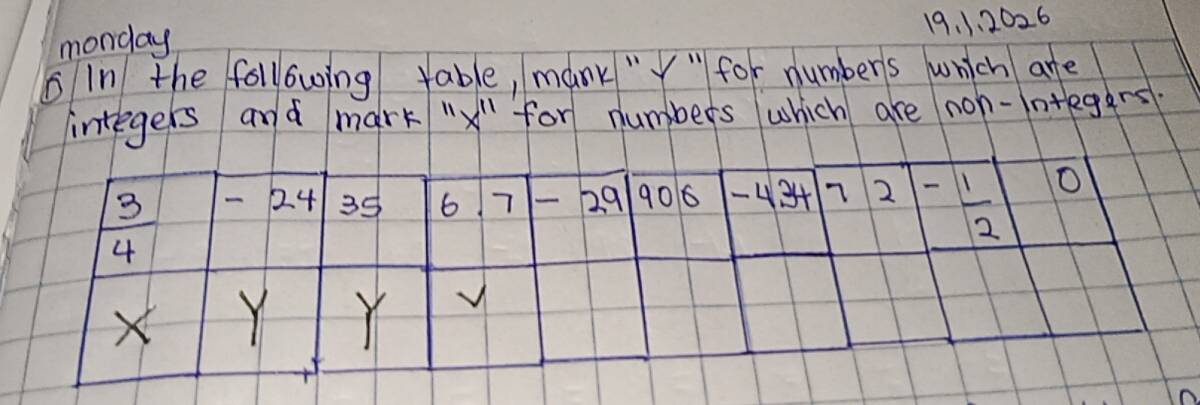 monday 19.1.2026
6 In the following table, mark "Y" for numbers which are
integers and mark "X" for numbers which are non-integers.
3/4 - 24 35 6.7 - 29 906 -434 72 - 1/2 0
X Y Y